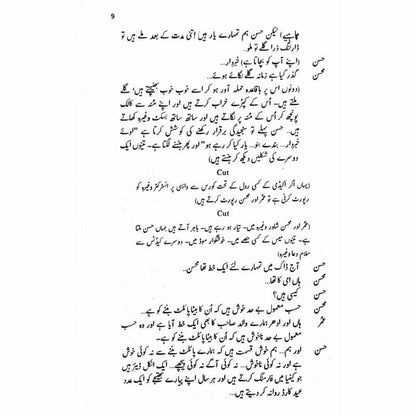 9
چاہیے) لیکن حسن ہم تمہارے یار ہیں اتنی مدت کے بعد ملے ہیں تو
ڈارلنگ ذرا گلے تو ملو۔
حسن (اپنے آپ کو بچاتا ہے) خبردار۔
محسن گذر گیا ہے زمانہ گلے لگائے ہوئے...
(دونوں اس پر باقاعدہ حملہ آور ہو کر اسے خوب خوب بھینچتے ہیں، گلے
ملتے ہیں۔ اُس کے کپڑے خراب کرتے ہیں اور اپنے منہ سے کالک
پونچھ کر اُس کے منہ پر لگاتے ہیں اور ساتھ ساتھ بسکٹ وغیرہ کھاتے
ہیں۔ حسن پہلے تو سنجیدگی برقرار رکھنے کی کوشش کرتا ہے "اوئے
خبردار... بندے بنو... یار کیا کر رہے ہو" اور پھر ہنسنے لگتا ہے۔ تینوں ایک
دوسرے کی شکلیں دیکھ کر ہنستے ہیں)
Cut
(یہاں اگر اکیڈمی کے کسی رول کے تحت کورس سے واپسی پر انسٹرکٹر وغیرہ کو
رپورٹ کرنی ہے تو عمر اور محسن رپورٹ کرتے ہیں)
Cut
(عمر اور محسن شاور وغیرہ میں۔ تیار ہو رہے ہیں۔ باہر آتے ہیں جہاں حسن ملتا
ہے۔ تینوں میس کے کسی حصے میں۔ خوشگوار موڈ میں۔ دوسرے کیڈٹس سے
سلام دعا وغیرہ)
حسن آج ڈاک میں تمہارے لئے ایک خط تھا محسن۔
محسن ہاں امی کا تھا۔
حسن کیسی ہیں؟
محسن حسب معمول بے حد خوش ہیں کہ اُن کا بیٹا پائلٹ بننے کو ہے...
عمر ہاں اور اُدھر ہمارے والد صاحب کا بھی ایک خط آیا ہے اور وہ حسب
معمول بے حد ناخوش ہیں کہ اُن کا بیٹا پائلٹ بننے کو ہے۔
حسن اور ہم... ہم خوش قسمت ہیں کہ ہمارے پائلٹ بننے سے نہ کوئی خوش
ہے اور نہ کوئی ناخوش... نہ کوئی آگے نہ کوئی پیچھے... ایک انکل ڈیئر ہیں
جو کینیا میں فارمنگ کرتے ہیں اور ہر سال اپنے پیارے بھتیجے کو ایک عدد
عید کارڈ روانہ کر دیتے ہیں۔